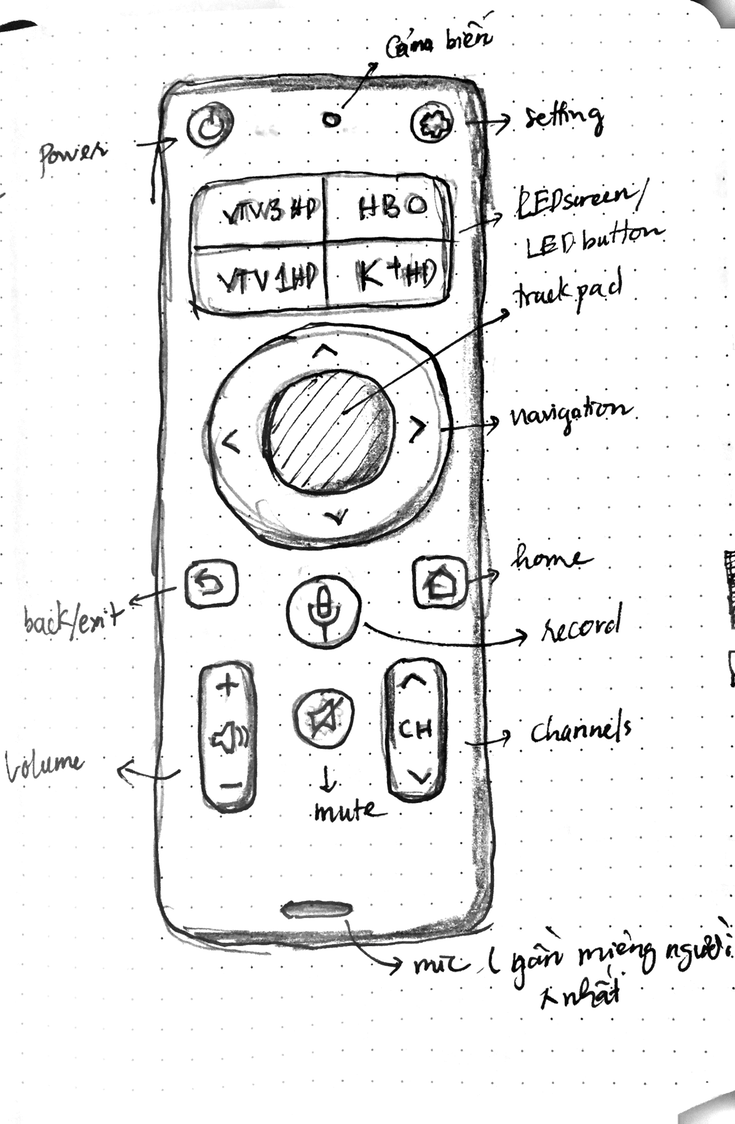 Cảm biến
Power
setting
VTV3 HD
HBO
VTV1HD
K+HD
LED screen/
LED button
track pad
navigation
home
back/exit
record
+
-
CH
Volume
channels
mute
mic ( gần miệng người
nhất